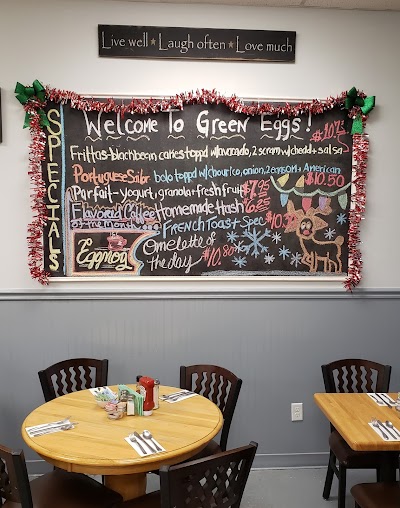 Live well ★ Laugh often ★ Love much
SPECIALS
Welcome To Green Eggs!
Frittas-blackbean cakes toppd w/avocado, 2 scram w/chedd + salsa $10.75
Portuguese Sailor bolo toppd w/chourico, onion, 2 eggs + American $10.50
Parfait-yogurt, granola + fresh fruit $7.25
Flavored Coffee of the Month
Homemade Hash $6.25
Eggnog
French Toast Spec $10.
Omelette of the day $10.80